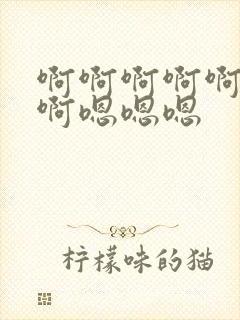 啊啊啊啊啊
啊嗯嗯嗯
柠檬味的猫